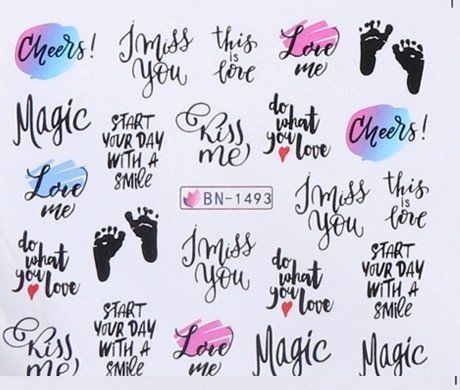 Cheers!
I Miss
You
this
is
love
Love
me
Magic
START
YOUR DAY
WITH A
SMILE
Kiss
me
do
what
you love
Cheers!
Love
me
BN-1493
I Miss
You
this
is
love
do
what
you love
I Miss
You
do
what
you love
START
YOUR DAY
WITH A
SMILE
Kiss
me
START
YOUR DAY
WITH A
SMILE
Love
me
Magic
Magic